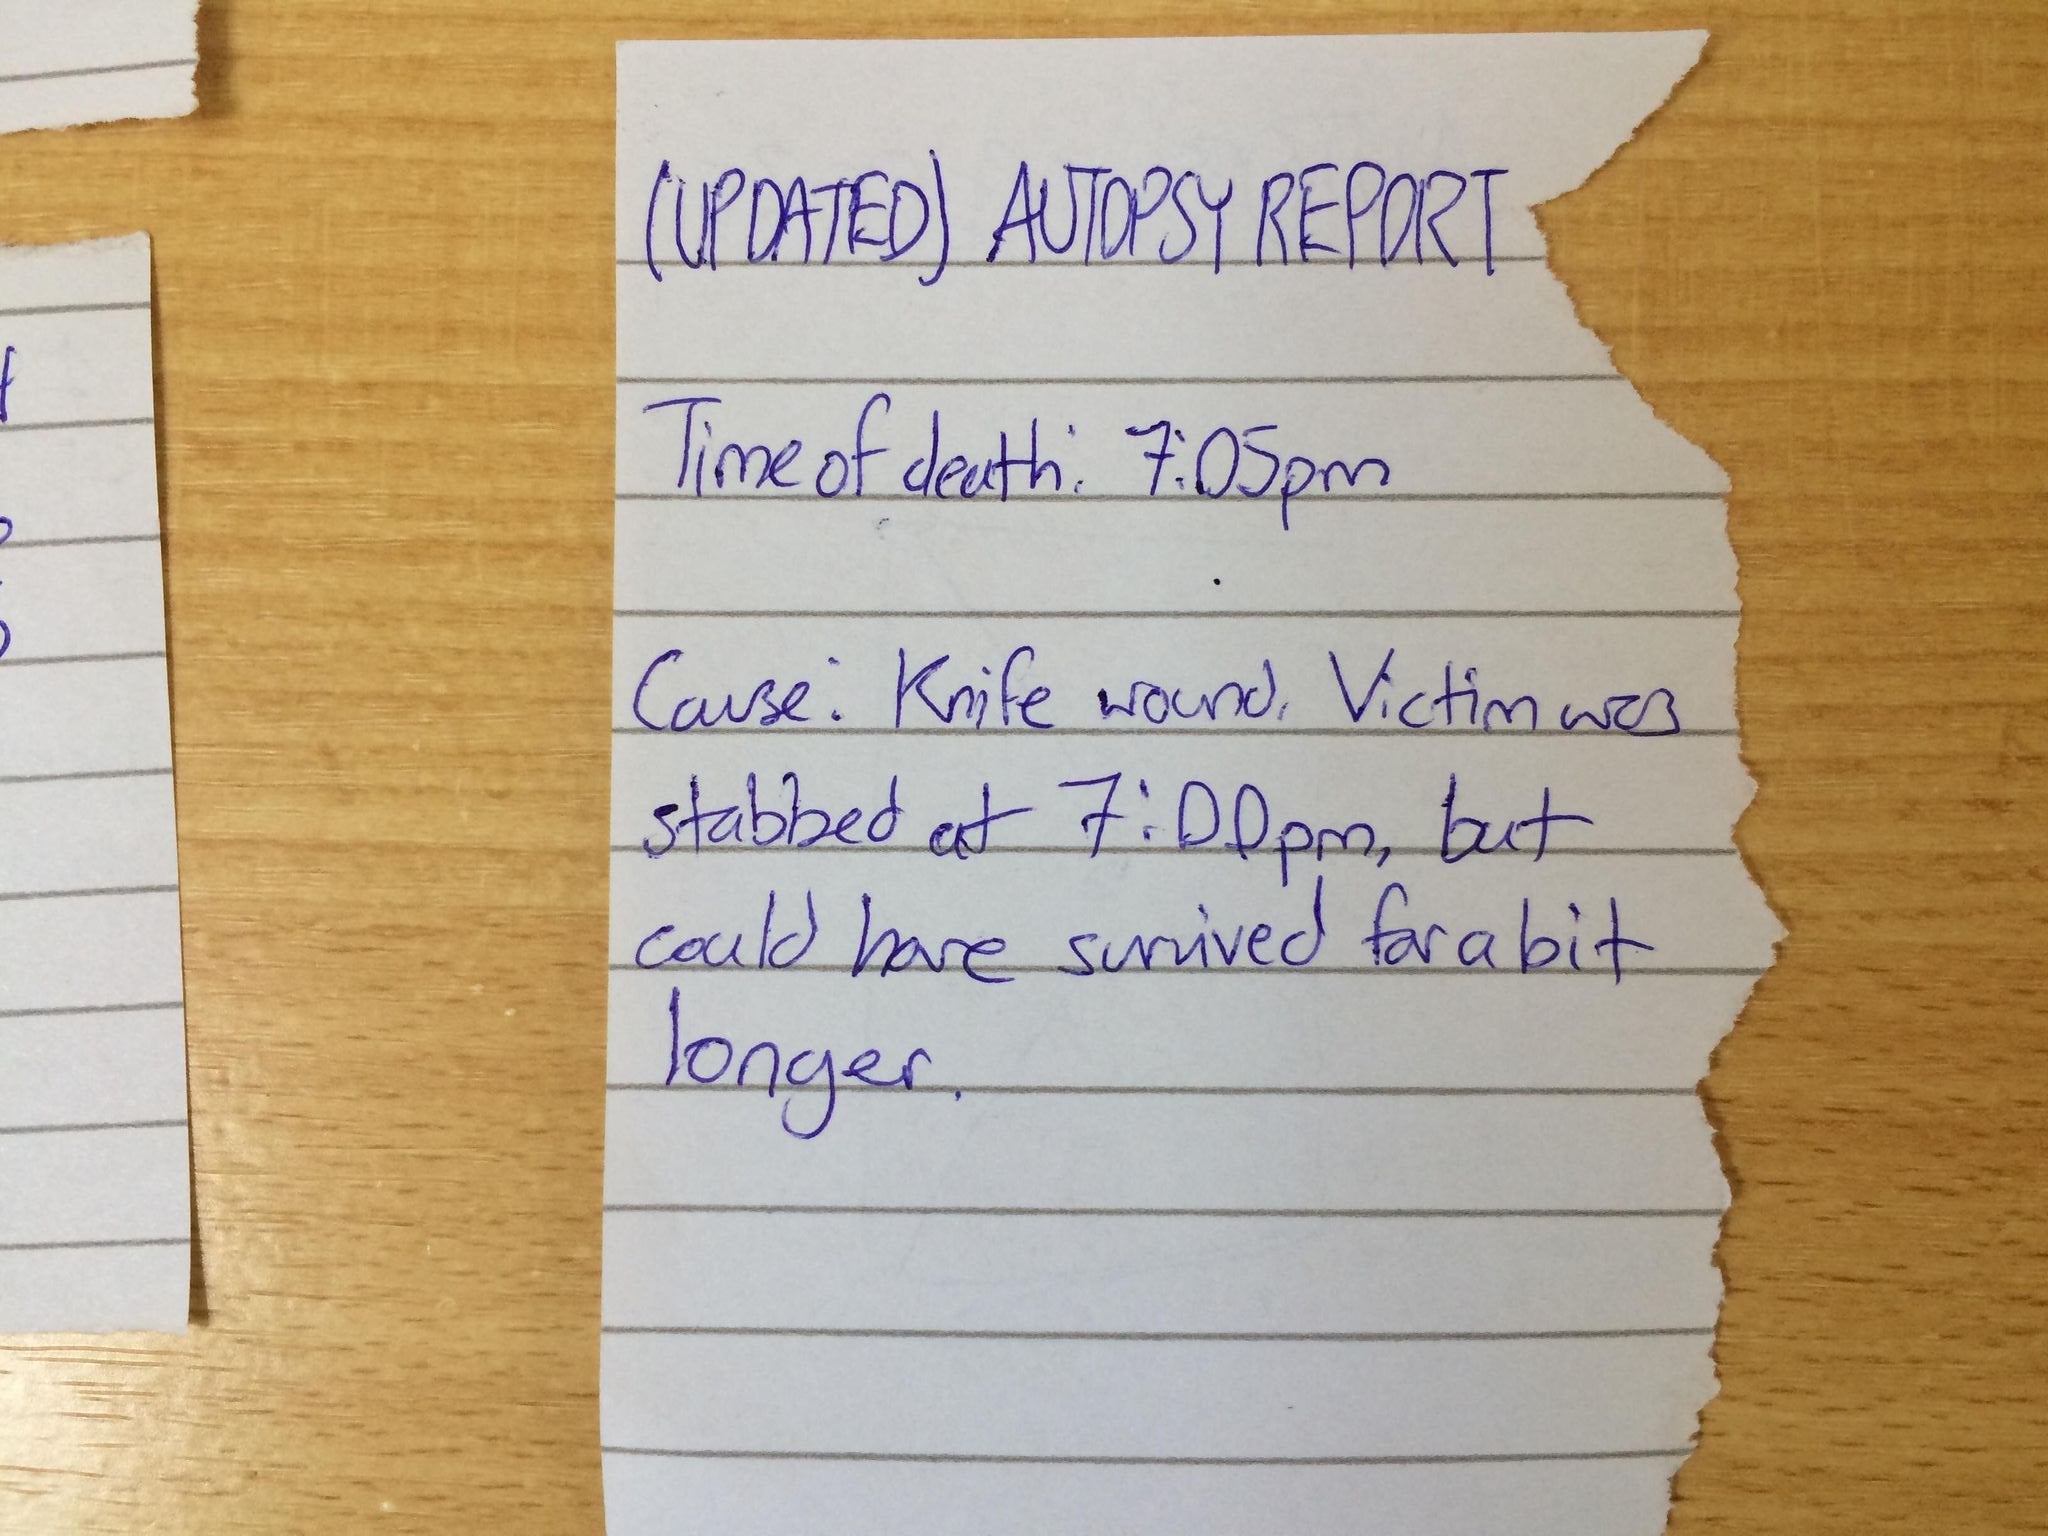 (UPDATED) AUTOPSY REPORT
Time of death: 7:05pm
Cause: Knife wound. Victim was
stabbed at 7:00pm, but
could have survived for a bit
longer.